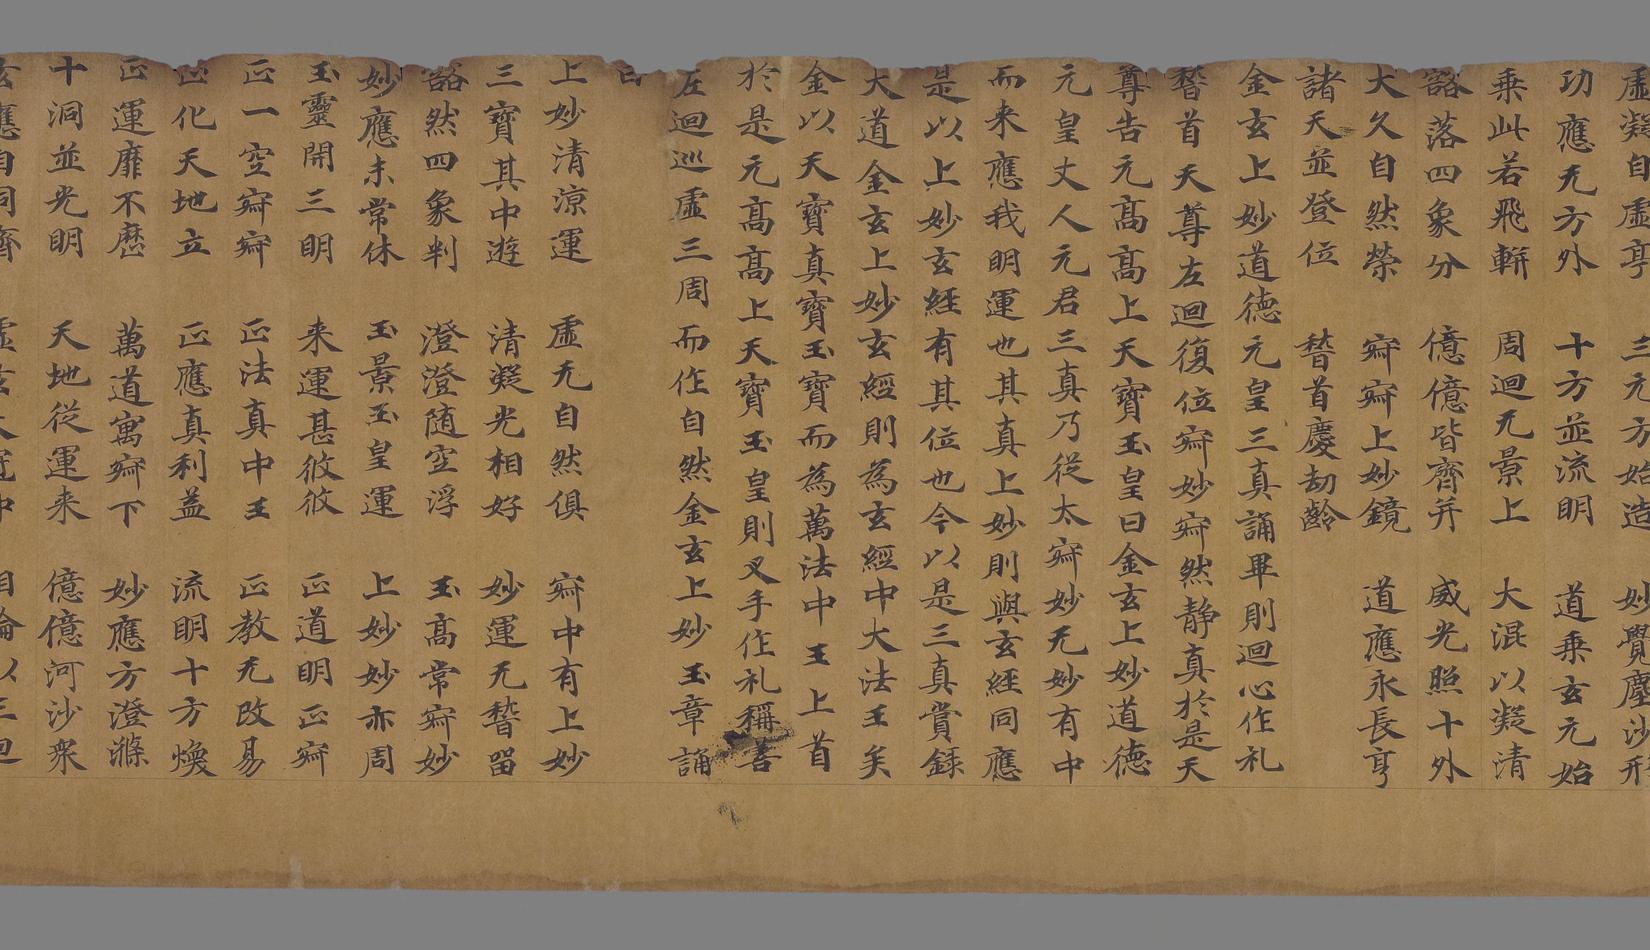 虛凝自虛亭　三元方始造　妙覺塵沙形
功應无方外　十方並流明　道乗玄元始
乗此若飛軿　周迴元景上　大混以凝清
豁落四象分　億億皆齊并　威光照十外
大久自然榮　寂寂上妙鏡　道應永長亨
諸天並登位　𥡴首慶劫齡
金玄上妙道德元皇三真誦畢則迴心作礼
𥡴首天尊左迴復位寂妙寂然静真於是天
尊告元高高上天寶玉皇曰金玄上妙道德
元皇丈人元君三真乃從太寂妙无妙有中
而来應我明運也其真上妙則與玄經同應
是以上妙玄經有其位也今以是三真賞録
大道金玄上妙玄經則為玄經中大法王矣
金以天寶真寶玉寶而為萬法中王上首
於是元高高上天寶玉皇則叉手作礼稱善
左迴巡虛三周而作自然金玄上妙玉章誦
曰
上妙清凉運　虛无自然俱　寂中有上妙
三寶其中遊　清凝光相好　妙運无𥡴留
豁然四象判　澄澄随空浮　玉高常寂妙
妙應未常休　玉景玉皇運　上妙妙亦周
玉靈開三明　来運甚攸攸　正道明正寂
正一空寂寂　正法真中王　正教无改易
正化天地立　正應真利益　流明十方煥
正運靡不歷　萬道寓寂下　妙應方澄滌
十洞並光明　天地從運来　億億河沙衆
玄應自同齊